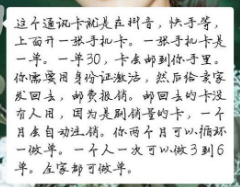 这个通讯卡就是在抖音，快手等，
上面开一张手机卡。一张手机卡是
一单。一单30，卡会邮到你手里。
你需要用身份证激活，然后给卖家
发回去，邮费报销。邮回去的卡没
有人用，因为是刷销量的卡，一个
月会自动注销。你两个月可以循环
一做单。一个人一次可以做3到6
单。全家都可做单。